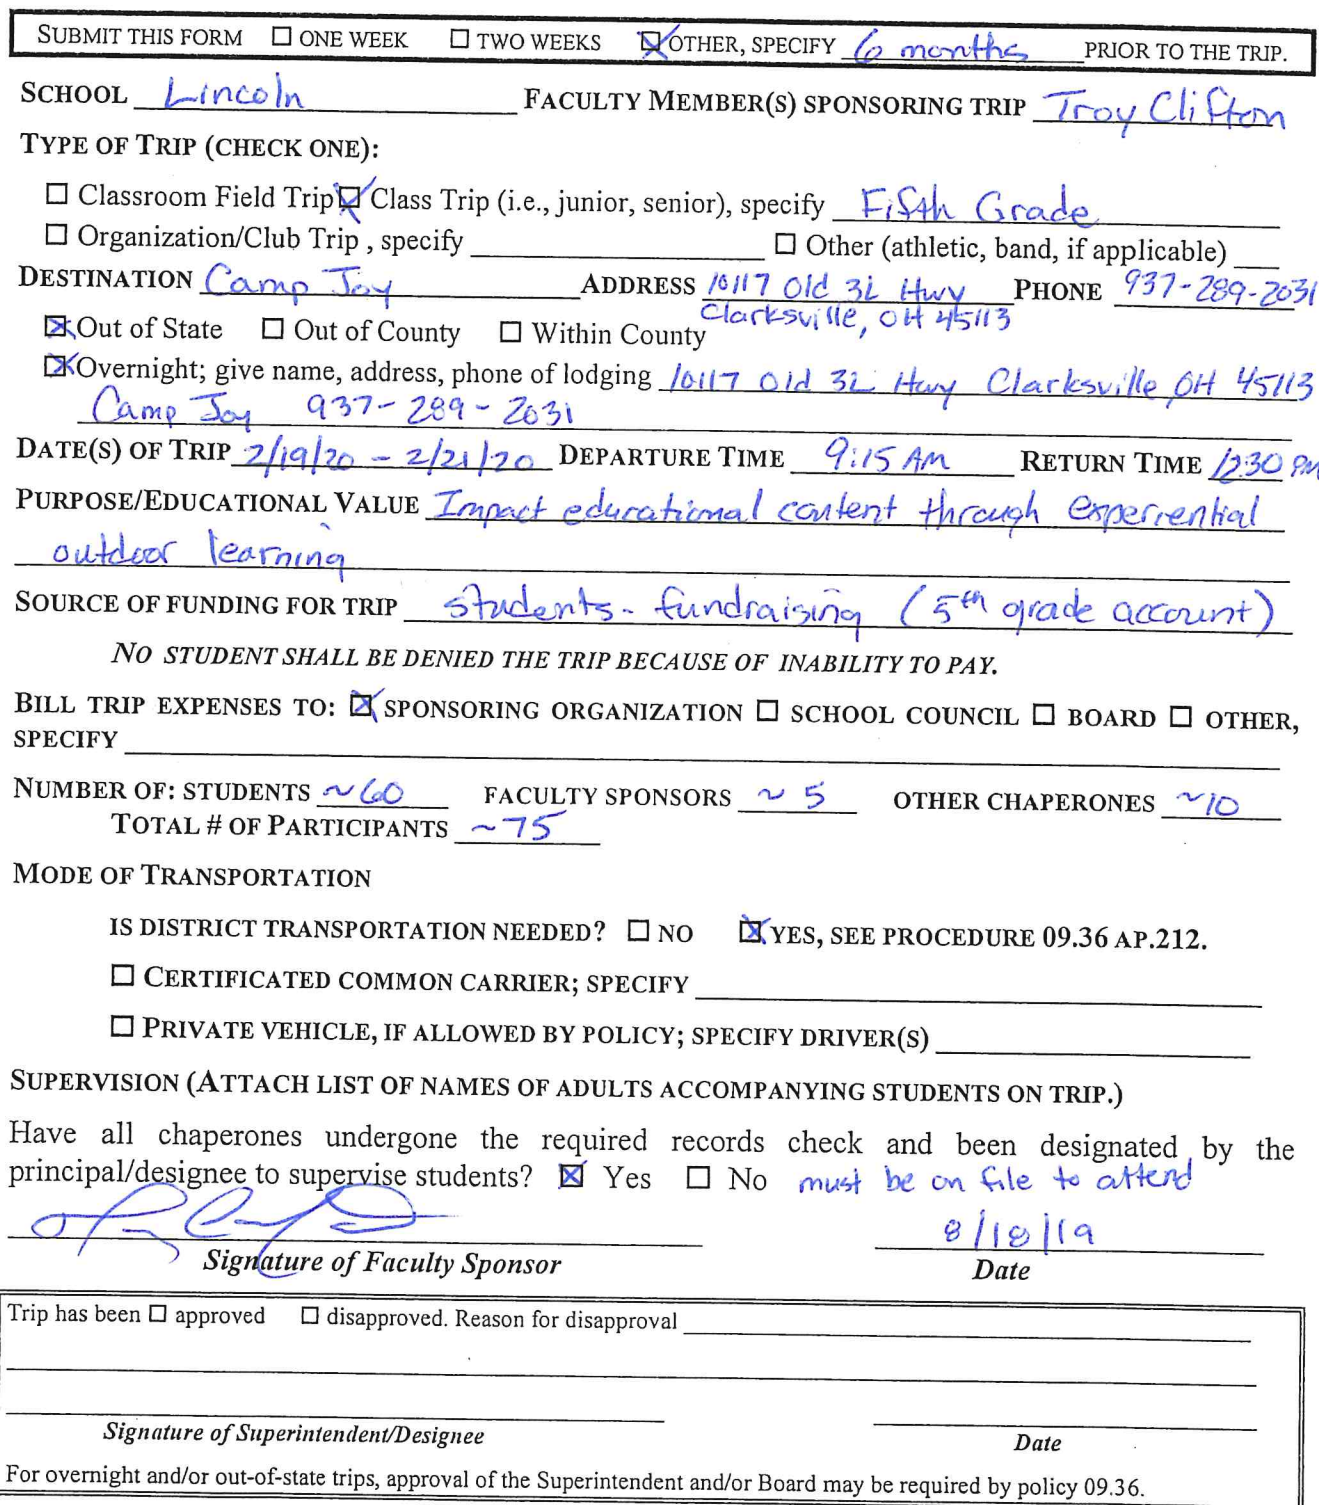 SUBMIT THIS FORM ☐ ONE WEEK ☐ TWO WEEKS ☒ OTHER, SPECIFY 6 months PRIOR TO THE TRIP.
SCHOOL Lincoln FACULTY MEMBER(S) SPONSORING TRIP Troy Clifton
TYPE OF TRIP (CHECK ONE):
☐ Classroom Field Trip ☒ Class Trip (i.e., junior, senior), specify Fifth Grade
☐ Organization/Club Trip , specify ☐ Other (athletic, band, if applicable)
DESTINATION Camp Joy ADDRESS 10117 Old 3C Hwy PHONE 937-289-2031
Clarksville, OH 45113
☒ Out of State ☐ Out of County ☐ Within County
☒ Overnight; give name, address, phone of lodging 10117 Old 3C Hwy Clarksville, OH 45113
Camp Joy 937-289-2031
DATE(S) OF TRIP 2/19/20 - 2/21/20 DEPARTURE TIME 9:15 AM RETURN TIME 12:30 PM
PURPOSE/EDUCATIONAL VALUE Impact educational content through experiential
outdoor learning
SOURCE OF FUNDING FOR TRIP students - fundraising (5th grade account)
NO STUDENT SHALL BE DENIED THE TRIP BECAUSE OF INABILITY TO PAY.
BILL TRIP EXPENSES TO: ☒ SPONSORING ORGANIZATION ☐ SCHOOL COUNCIL ☐ BOARD ☐ OTHER,
SPECIFY
NUMBER OF: STUDENTS ~60 FACULTY SPONSORS ~5 OTHER CHAPERONES ~10
TOTAL # OF PARTICIPANTS ~75
MODE OF TRANSPORTATION
IS DISTRICT TRANSPORTATION NEEDED? ☐ NO ☒ YES, SEE PROCEDURE 09.36 AP.212.
☐ CERTIFICATED COMMON CARRIER; SPECIFY
☐ PRIVATE VEHICLE, IF ALLOWED BY POLICY; SPECIFY DRIVER(S)
SUPERVISION (ATTACH LIST OF NAMES OF ADULTS ACCOMPANYING STUDENTS ON TRIP.)
Have all chaperones undergone the required records check and been designated by the
principal/designee to supervise students? ☒ Yes ☐ No must be on file to attend
8/18/19
Signature of Faculty Sponsor Date
Trip has been ☐ approved ☐ disapproved. Reason for disapproval
Signature of Superintendent/Designee Date
For overnight and/or out-of-state trips, approval of the Superintendent and/or Board may be required by policy 09.36.